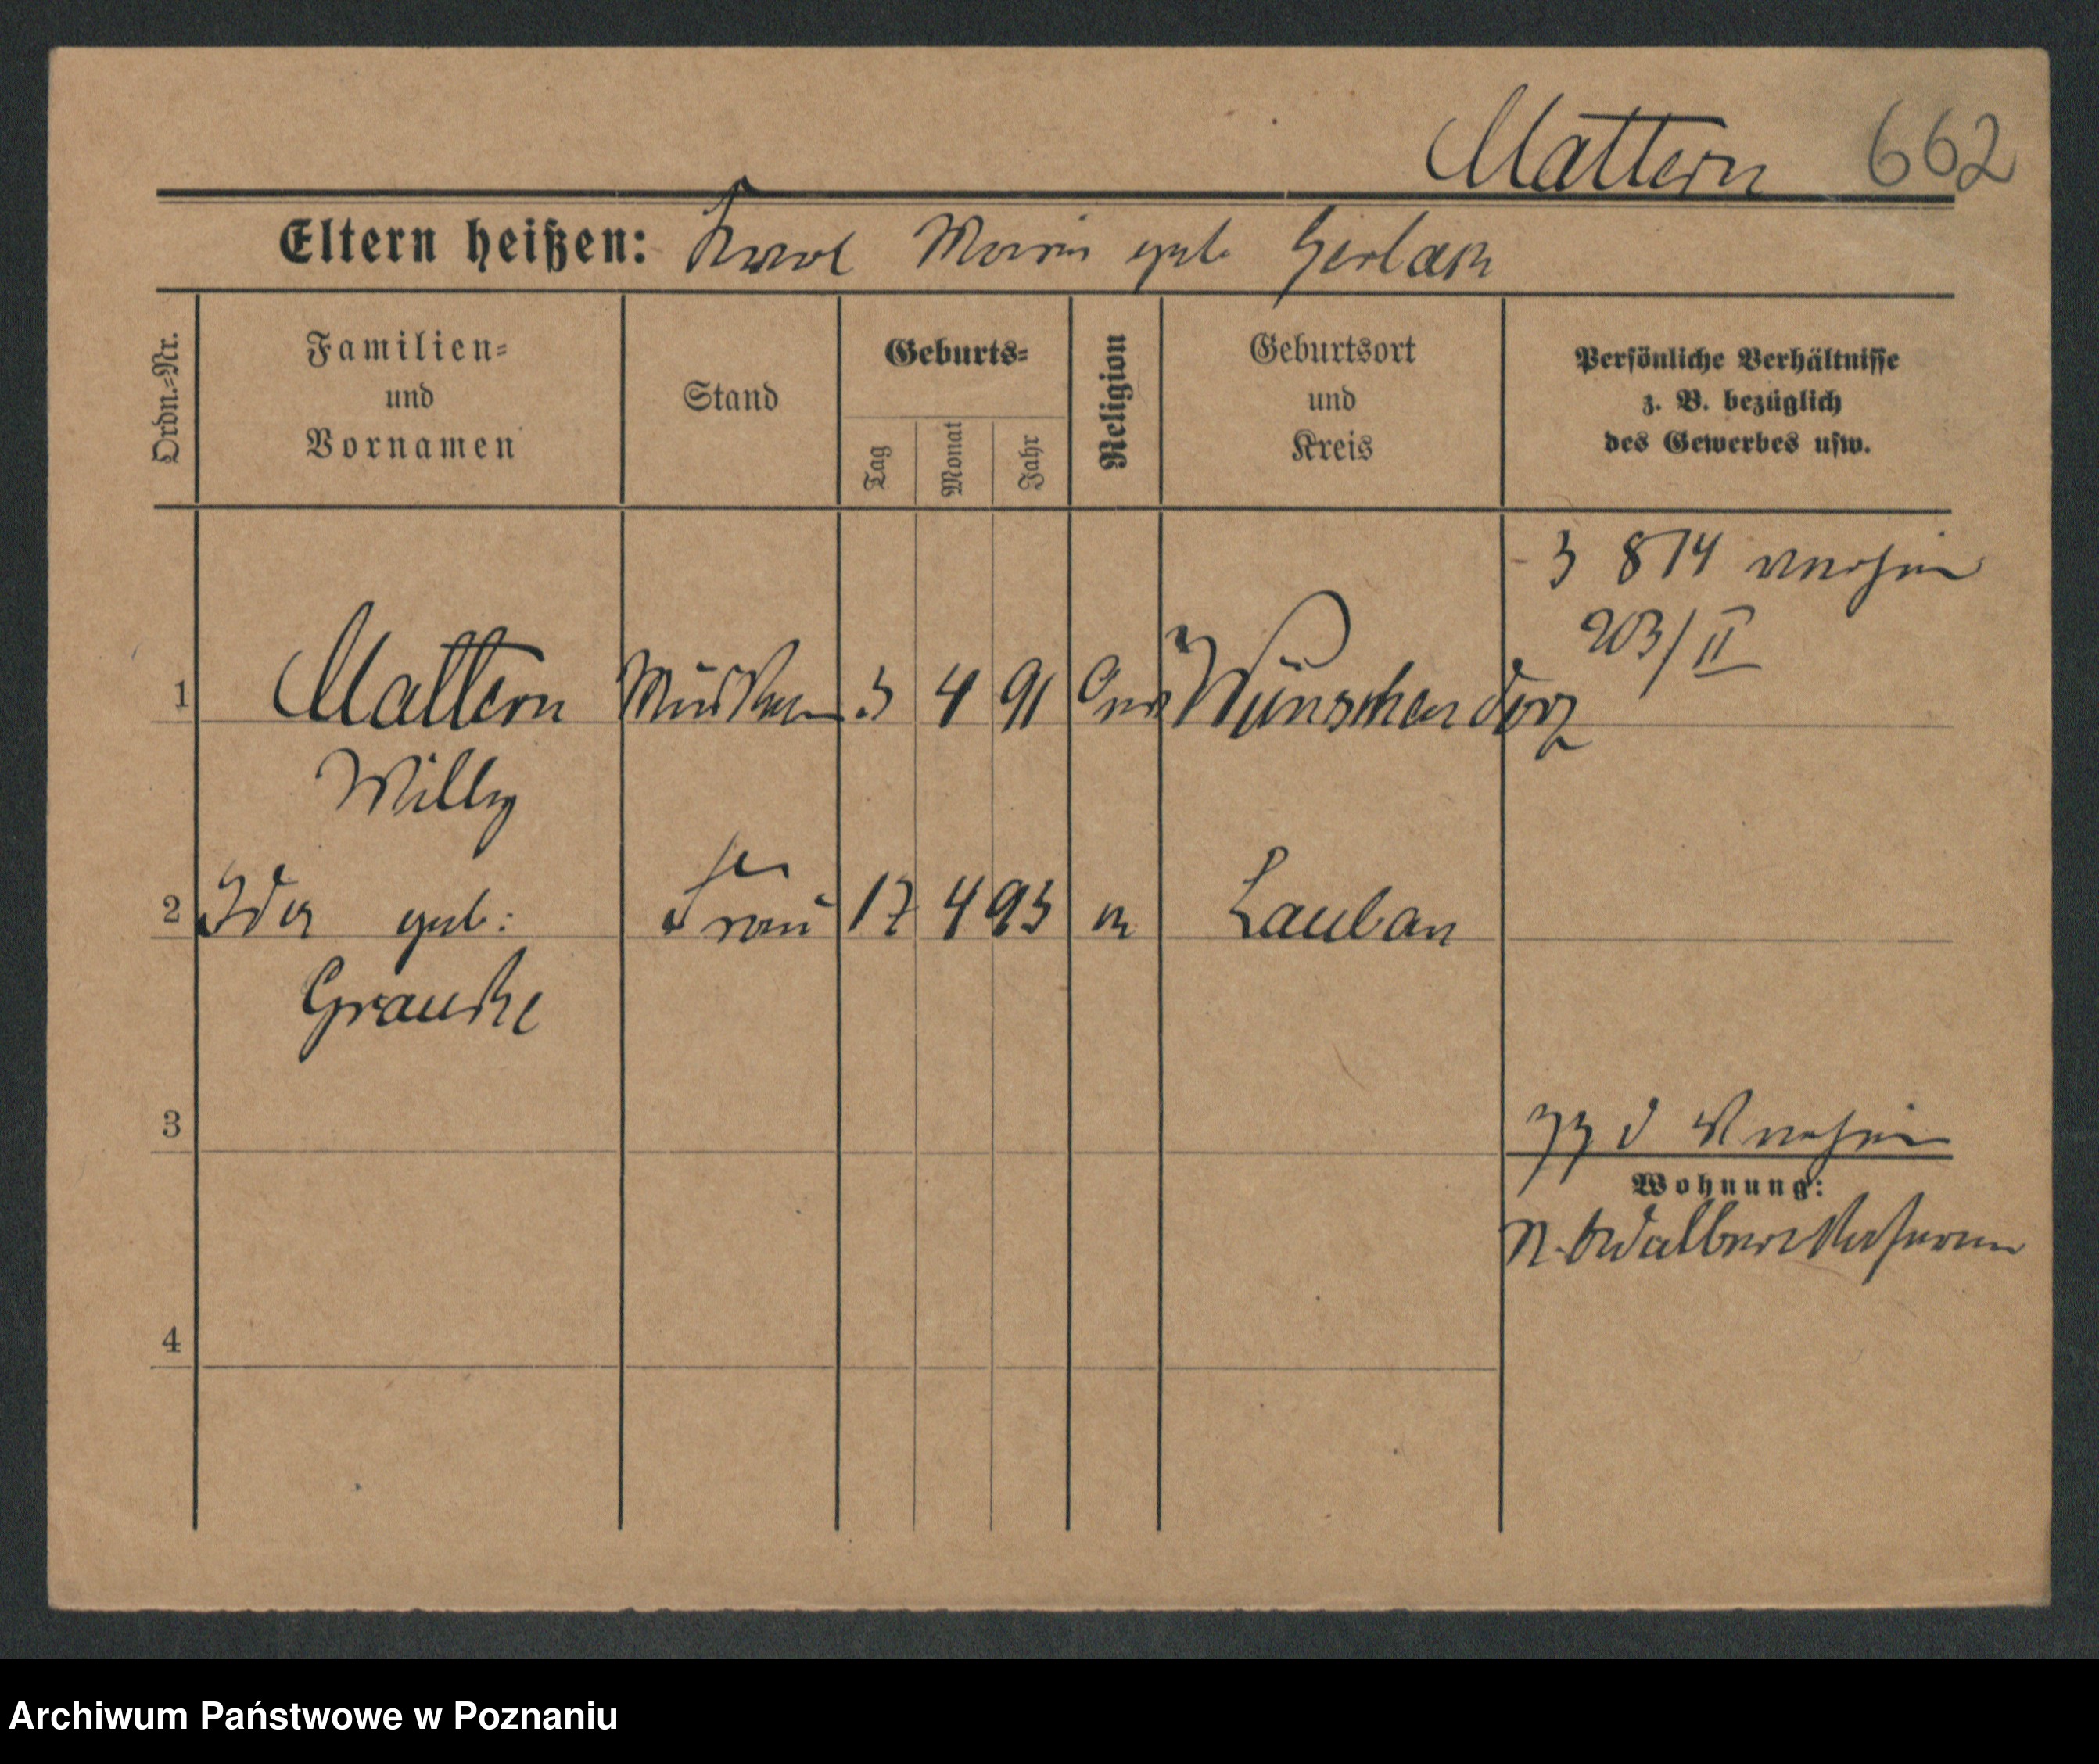 Mattern 662
Eltern heißen: Karl Marie geb. Gerlach
Ordn.=Nr.
Familien=
und
Vornamen
Stand
Geburts=
Tag
Monat
Jahr
Religion
Geburtsort
und
Kreis
Persönliche Verhältnisse
z. B. bezüglich
des Gewerbes usw.
3 8 14
203/II
1 Mattern 3 4 91 Wünschendorf
Willy
2 Ida geb: Frau 17 4 93 Lauban
Grauske
3
Wohnung:
4
Archiwum Państwowe w Poznaniu